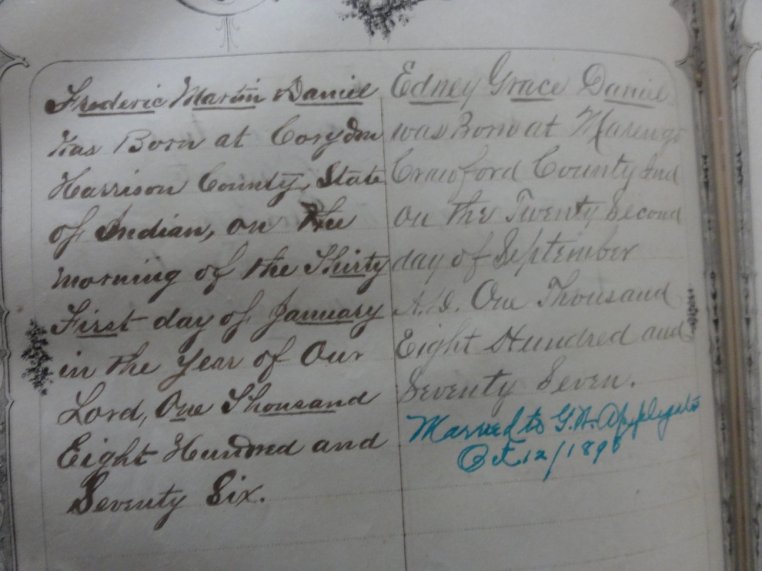 Frederic Martin Daniel
Was Born at Corydon
Harrison County, State
of Indian, on the
morning of the Thirty
First day of January
in the year of Our
Lord, One Thousand
Eight Hundred and
Seventy Six.
Edney Grace Daniel
was Born at Marengo
Crawford County Ind
on the Twenty Second
day of September
A.D. One Thousand
Eight Hundred and
Seventy Seven.
Married to G.A. Applegate
Oct 12/1898